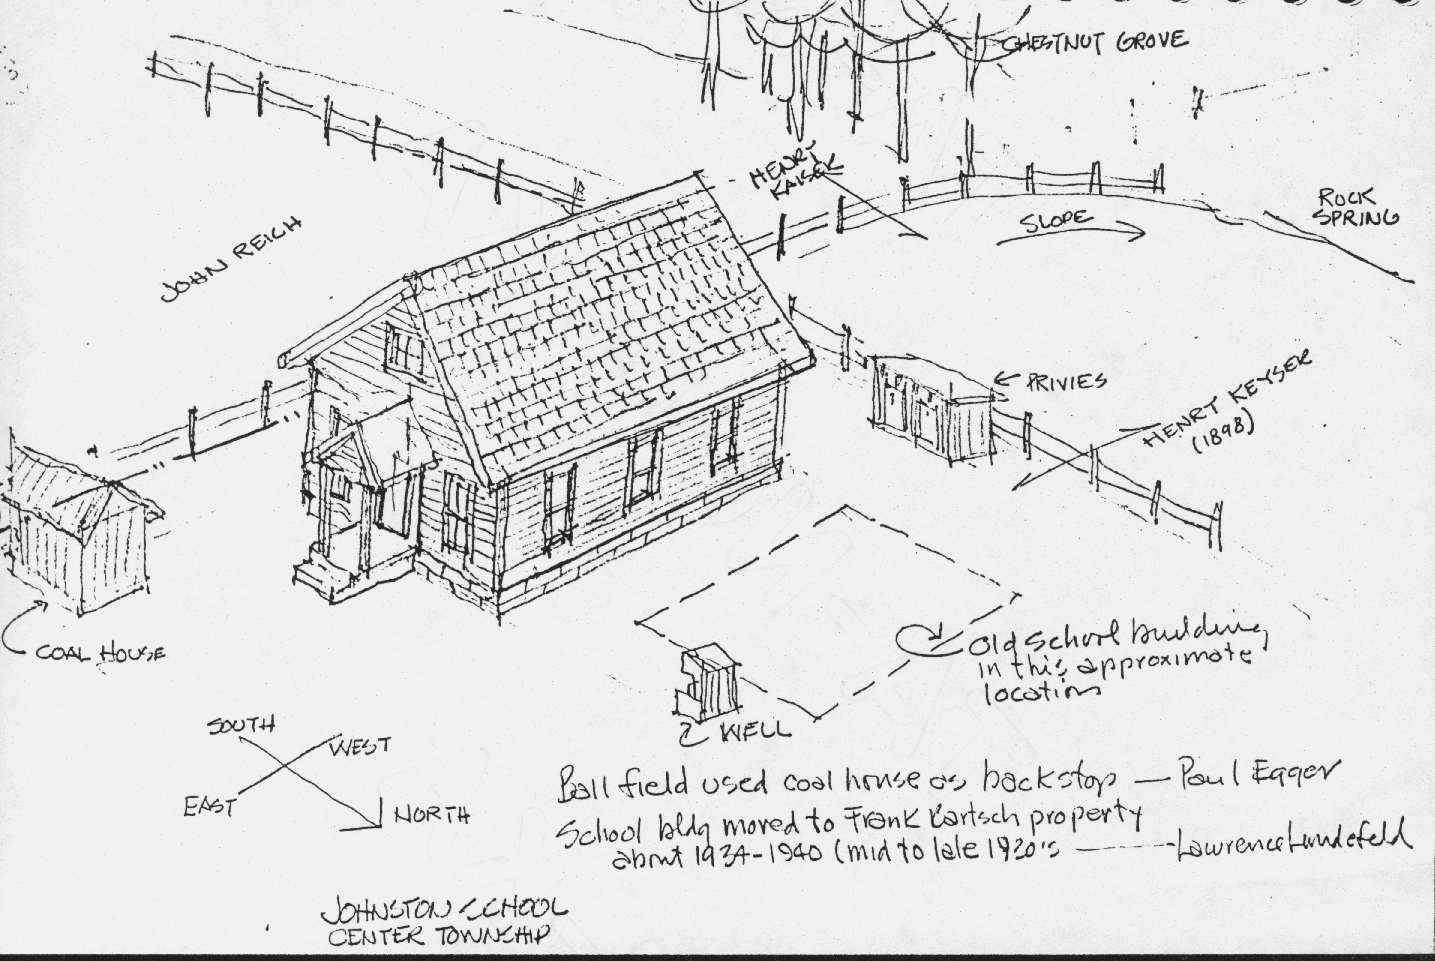 CHESTNUT GROVE
HENRY
KAISER
ROCK
SPRING
SLOPE
JOHN REICH
PRIVIES
HENRY KEYSER
(1898)
Old School building
in this approximate
location
COAL HOUSE
WELL
SOUTH
WEST
EAST
NORTH
Ball field used coal house as backstop — Paul Egger
School bldg moved to Frank Kartsch property
about 1934-1940 (mid to late 1930's — Lawrence
JOHNSTON SCHOOL
CENTER TOWNSHIP